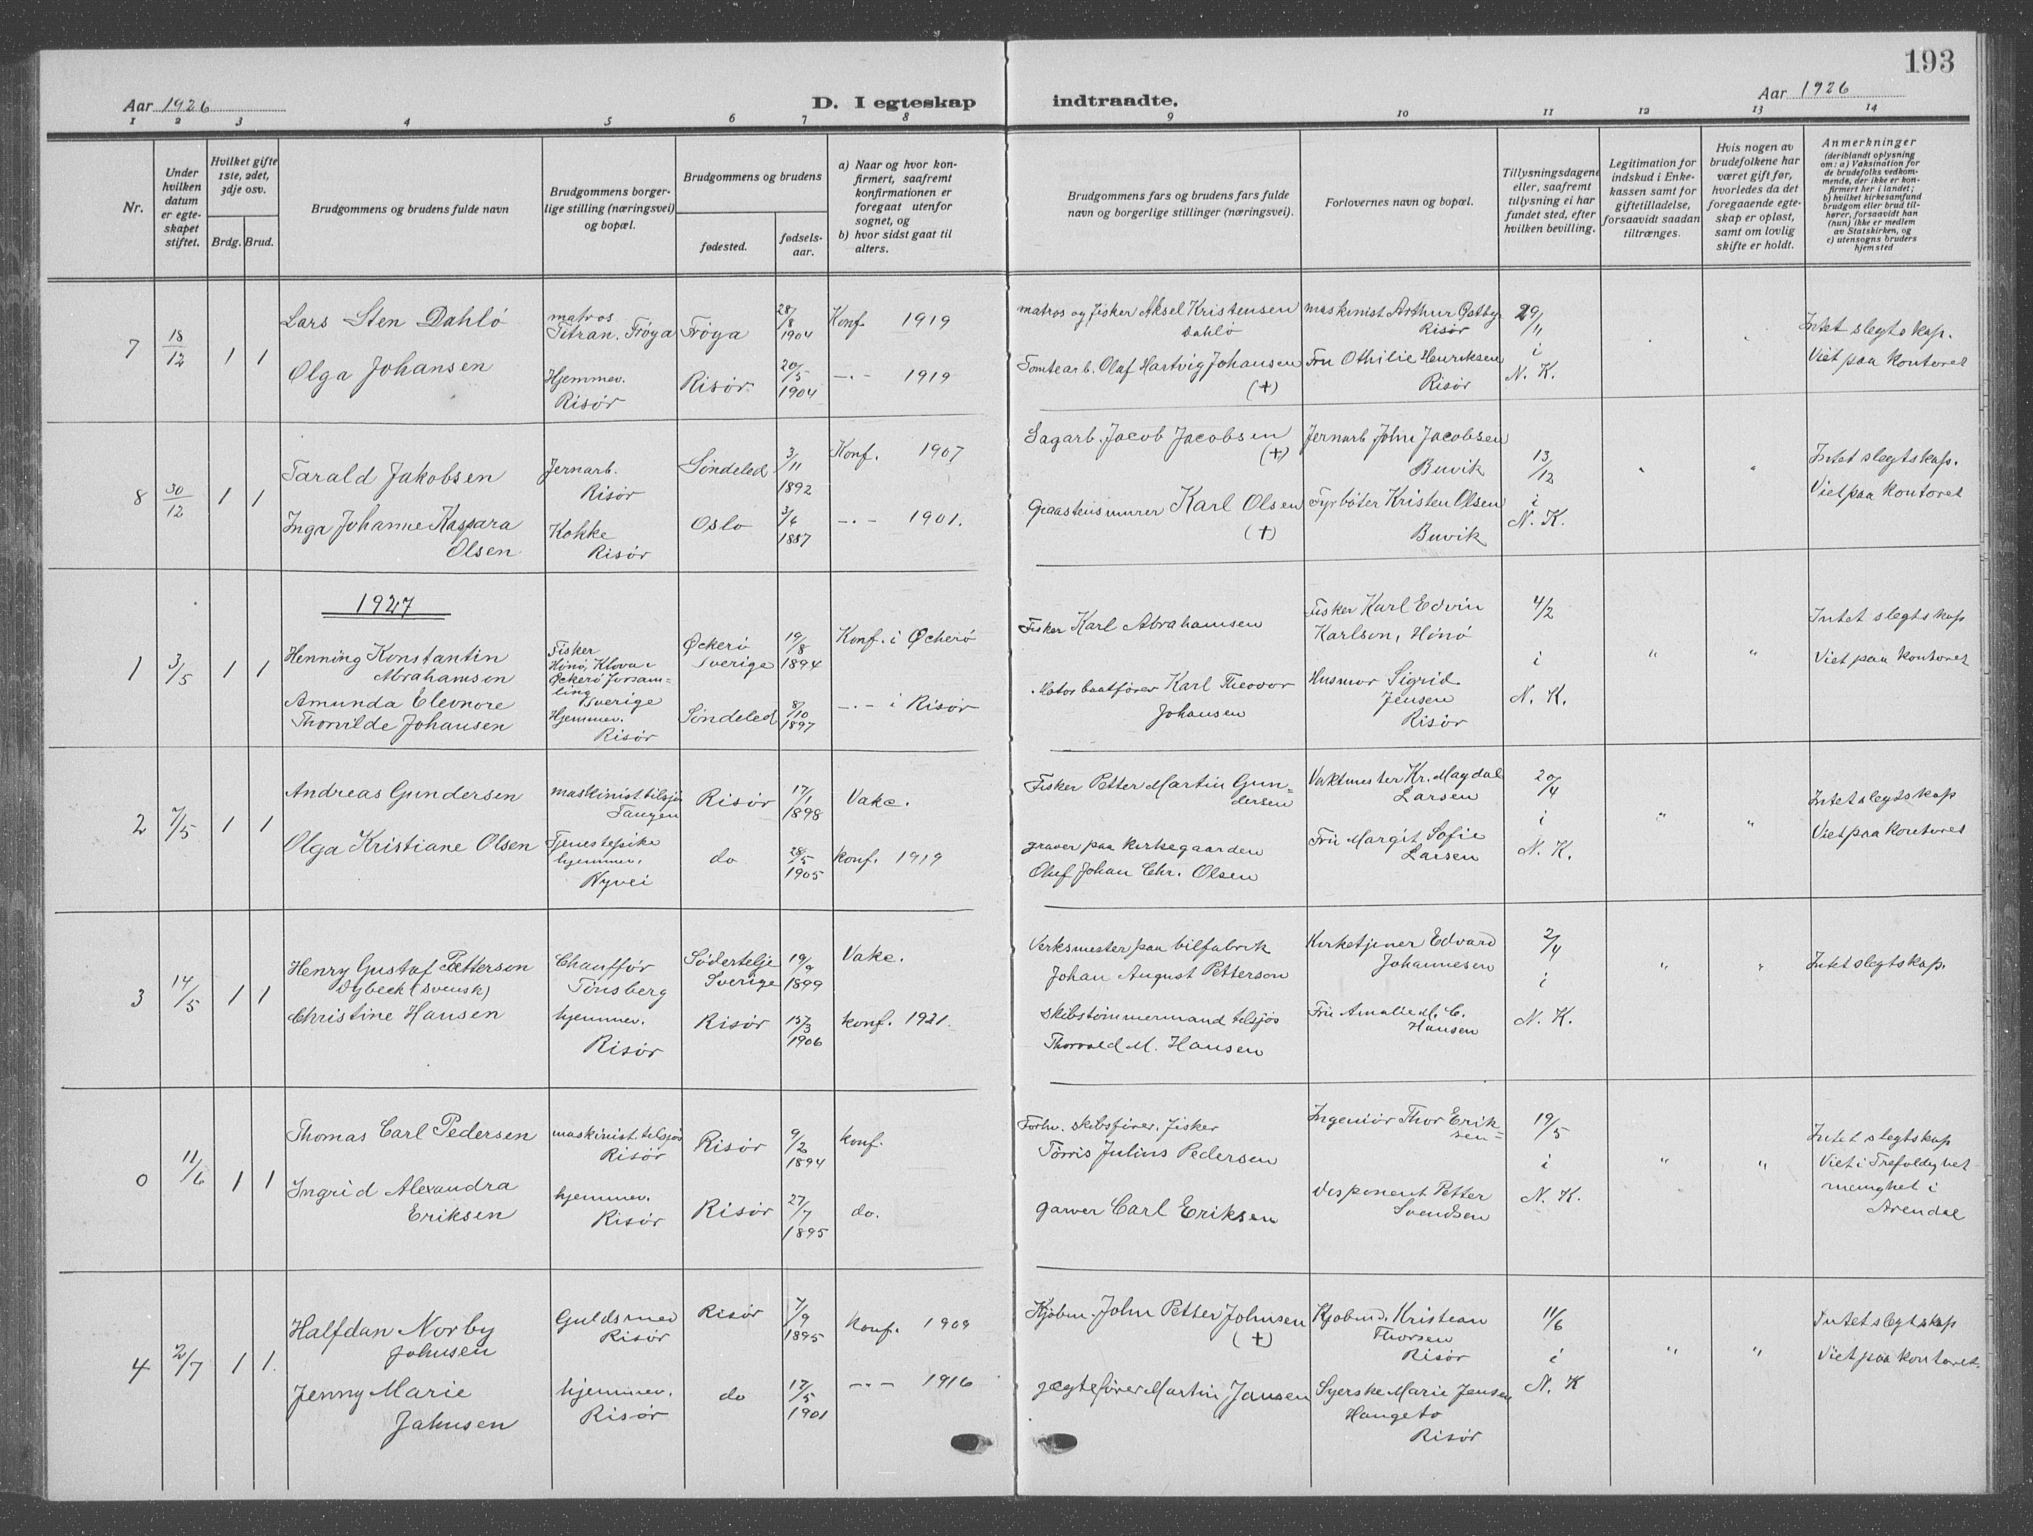 193
Aar 1926
D. I egteskap indtraadte.
Aar 1926
1 2 3 4 5 6 7 8 9 10 11 12 13 14
Nr.
Under hvilken datum er egteskapet stiftet.
Hvilket gifte 1ste, 2det, 3dje osv.
Brdg. Brud.
Brudgommens og brudens fulde navn
Brudgommens borgerlige stilling (næringsvei) og bopæl.
Brudgommens og brudens
fødested.
fødselsaar.
a) Naar og hvor konfirmert, saafremt konfirmationen er foregaat utenfor sognet, og
b) hvor sidst gaat til alters.
Brudgommens fars og brudens fars fulde navn og borgerlige stillinger (næringsvei).
Forlovernes navn og bopæl.
Tillysningsdagene eller, saafremt tillysning ei har fundet sted, efter hvilken bevilling.
Legitimation for indskud i Enkekassen samt for giftetilladelse, forsaavidt saadan tiltrænges.
Hvis nogen av brudefolkene har været gift før, hvorledes da det foregaaende egteskap er opløst, samt om lovlig skifte er holdt.
Anmerkninger
(deriblandt oplysning om: a) Vaksination for de brudefolks vedkommende, der ikke er konfirmert her i landet; b) hvilket kirkesamfund brudgom eller brud tilhører, forsaavidt han (hun) ikke er medlem av Statskirken, og c) utensogns bruders hjemsted
7 18/12 1 1
Lars Sten Dahlö
matros
Titran, Frøya
Frøya
28/8 1904
Konf. 1919
matros og fisker Aksel Kristensen
Dahlö
maskinist Arthur
Risör
29/11
i
N. K.
Intet slegtskap.
Viet paa kontoret
Olga Johansen
Hjemmev.
Risör
Risör
20/5 1904
-"- 1919
Tomtearb. Olaf Hartvig Johansen
(+)
Fru Othilie Henriksen
Risör
8 30/12 1 1
Tarald Jakobsen
Jernarb.
Risör
Söndeled
3/11 1892
Konf. 1907
Sagarb. Jacob Jacobsen
(+)
Jernarb John Jacobsen
Buvik
13/12
i
N. K.
"
"
Intet slegtskap.
Viet paa kontoret
Inga Johanne Kaspara
Olsen
Kokke
Risör
Oslo
3/6 1887
-"- 1901.
Graastensmurer Karl Olsen
(+)
Fyrböter Kristen Olsen
Buvik
1927
1 3/5 1 1
Henning Konstantin
Abrahamson
Fisker
Hönö, Klova i
Öckerö forsamling
Sverige
Öckerö
Sverige
19/8 1894
Konf. i Öckerö
Fisker Karl Abrahamsen
Fisker Karl Edvin
Karlson, Hönö
4/2
i
N. K.
"
"
Intet slegtskap
Viet paa kontoret
Amunda Eleonore
Thorvilde Johansen
Hjemmev.
Risör
Söndeled
8/10 1897
-"- i Risör
Motorbaatförer Karl Theodor
Johansen
Husmor Sigrid
Jensen
Risör
2 7/5 1 1
Andreas Gundersen
maskinist tilsjös
Tangen
Risör
17/1 1898
Vake.
Fisker Petter Martin Gundersen
Vaktmester Kr. Magdal
Larsen
20/4
i
N. K.
"
"
Intet slegtskap
Viet paa kontoret
Olga Kristiane Olsen
Tjenestepike
hjemmev.
Nyvei
do
28/5 1905
konf. 1919
graver paa kirkegaarden
Oluf Johan Chr. Olsen
Fru Margit Sofie
Larsen
3 14/5 1 1
Henry Gustaf Petterson
Dybeck (svensk)
Chauffør
Tönsberg
Södertelje
Sverige
19/9 1899
Vake.
Verksmester paa bilfabrik
Johan August Petterson
Kirketjener Edvard
Johannesen
2/4
i
N. K.
"
"
Intet slegtskap.
Christine Hansen
hjemmev.
Risör
Risör
1906
konf. 1921.
Skibstömmermand tilsjös
Thorvald M. Hansen
Fru Amalie M. C.
Hansen
0 11/6 1 1
Thomas Carl Pedersen
maskinist tilsjös
Risör
Risör
9/2 1894
konf.
Forhv. skibsförer, fisker
Törris Julius Pedersen
Ingeniör Thor Eriksen
19/5
i
N. K.
"
"
Intet slegtskap
Viet i Trefoldighet
menighet i
Arendal
Ingrid Alexandra
Eriksen
hjemmev.
Risör
Risör
27/7 1895
do.
garver Carl Eriksen
Disponent Petter
Svendsen
4 2/7 1 1.
Halfdan Norby
Johnsen
Guldsmed
Risör
Risör
7/9 1895
Konf. 1909
Kjöbm. John Petter Johnsen
(+)
Kjöbmd. Kristian
Thorsen
Risör
11/6
i
N. K
"
"
Intet slegtskap
Viet paa kontoret.
Jenny Marie
Jahnsen
hjemmev.
Risör
do
17/5 1901
-"- 1916
Jægtefører Martin Jansen
Syerske Marie Jensen
Hangeto
Risör